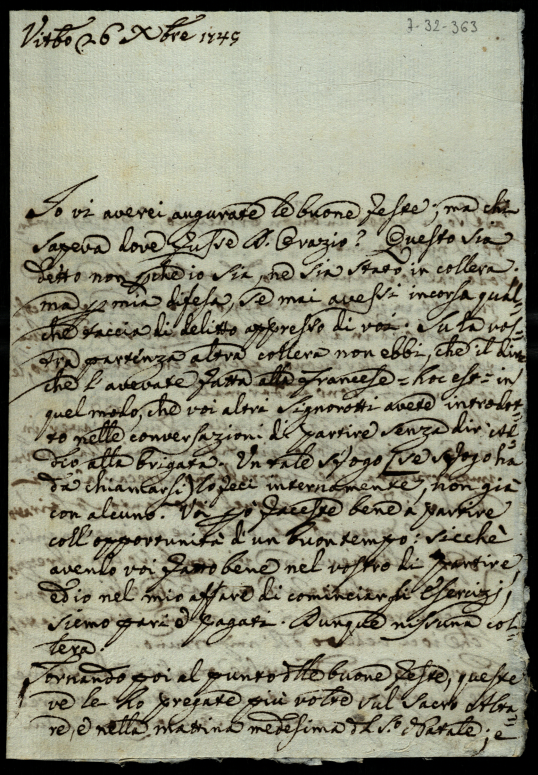 Vitbo 26 Xbre 1745
7-32-363
Io vi averei augurate le buone feste; ma chi
sapeva dove fusse D. Orazio? Questo sia
detto non pche io sia, ne sia stato in collera.
ma p mia difesa, se mai avessi incorsa qual-
che taccia di delitto appresso di voi. Su la vos-
tra partenza altra collera non ebbi, che il dire
che l'avevate fatta alla francese = hoc est = in
quel modo, che voi altri Signorotti avete introdot-
to nelle conversazioni di partire senza dir ad-
dio alla brigata. Un tale sfogo (se sfogo ha
da chiamarsi) lo feci internamente, non già
con alcuno. Va pò faceste bene a partire
coll'opportunità d'un buon tempo: sicchè
avendo voi fatto bene nel vostro di partire,
ed io nel mio affare di cominciarsi Esercizj,
siemo pari e pagati. Dunque nissuna col-
lera.
Tornando poi al punto dlle buone feste, queste
ve le ho pregate più volte sul Sacro Alta-
re, e nella mattina medesima di S. Natale; e